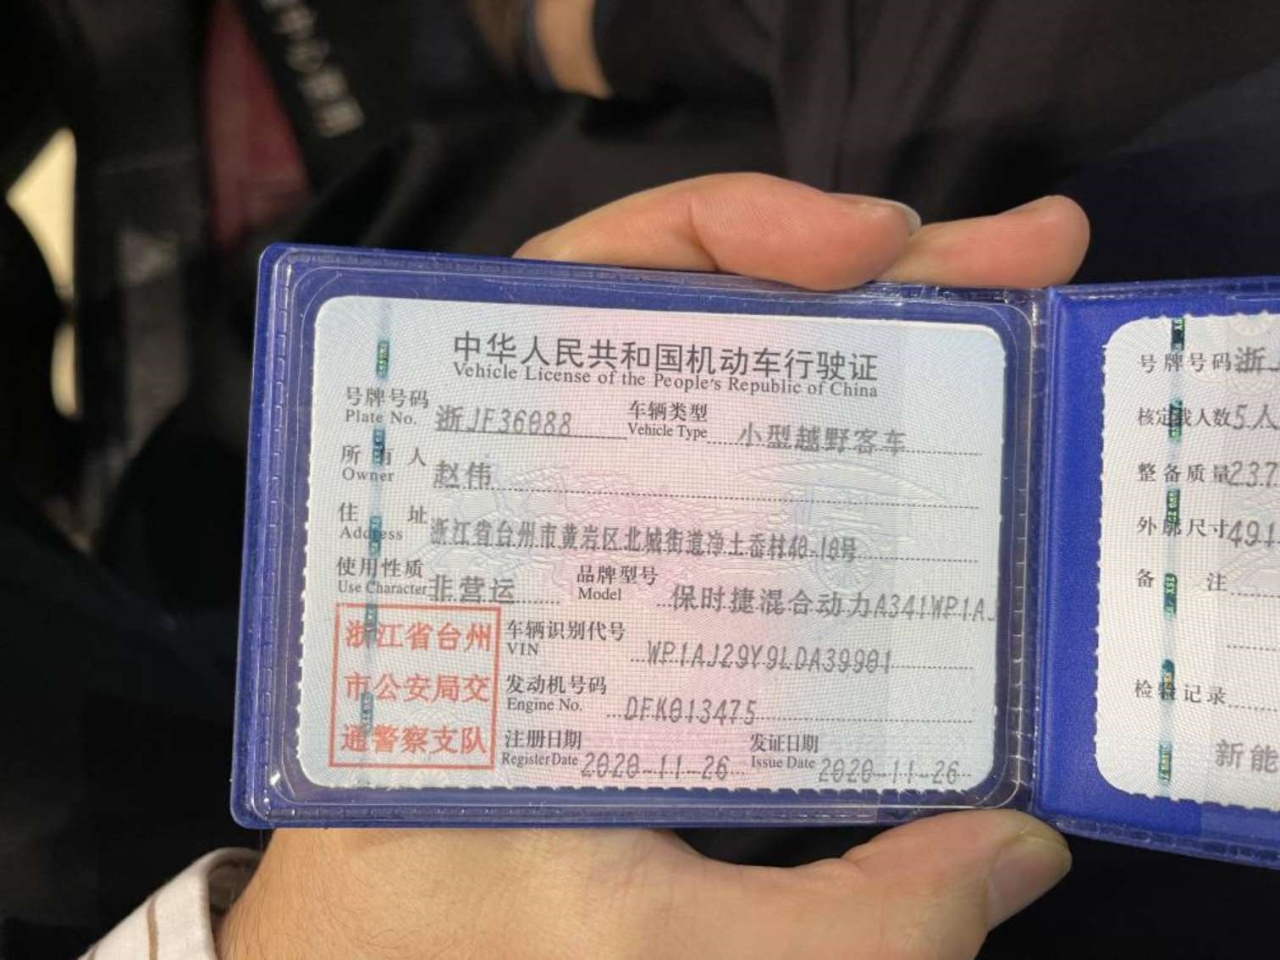 中华人民共和国机动车行驶证
Vehicle License of the People's Republic of China
号牌号码 浙JF36088 车辆类型 小型越野客车
Plate No. Vehicle Type
所有人 赵伟
Owner
住址 浙江省台州市黄岩区北城街道净土岙村40-10号
Address
使用性质 非营运 品牌型号 保时捷混合动力A341WP1AJ
Use Character Model
浙江省台州
市公安局交
通警察支队
车辆识别代号 WP1AJ29Y9LDA39901
VIN
发动机号码 DFK013475
Engine No.
注册日期 2020-11-26 发证日期 2020-11-26
Register Date Issue Date
号牌号码 浙J
核定载人数 5人
整备质量 237
外廓尺寸 491
备注
检验记录
新能